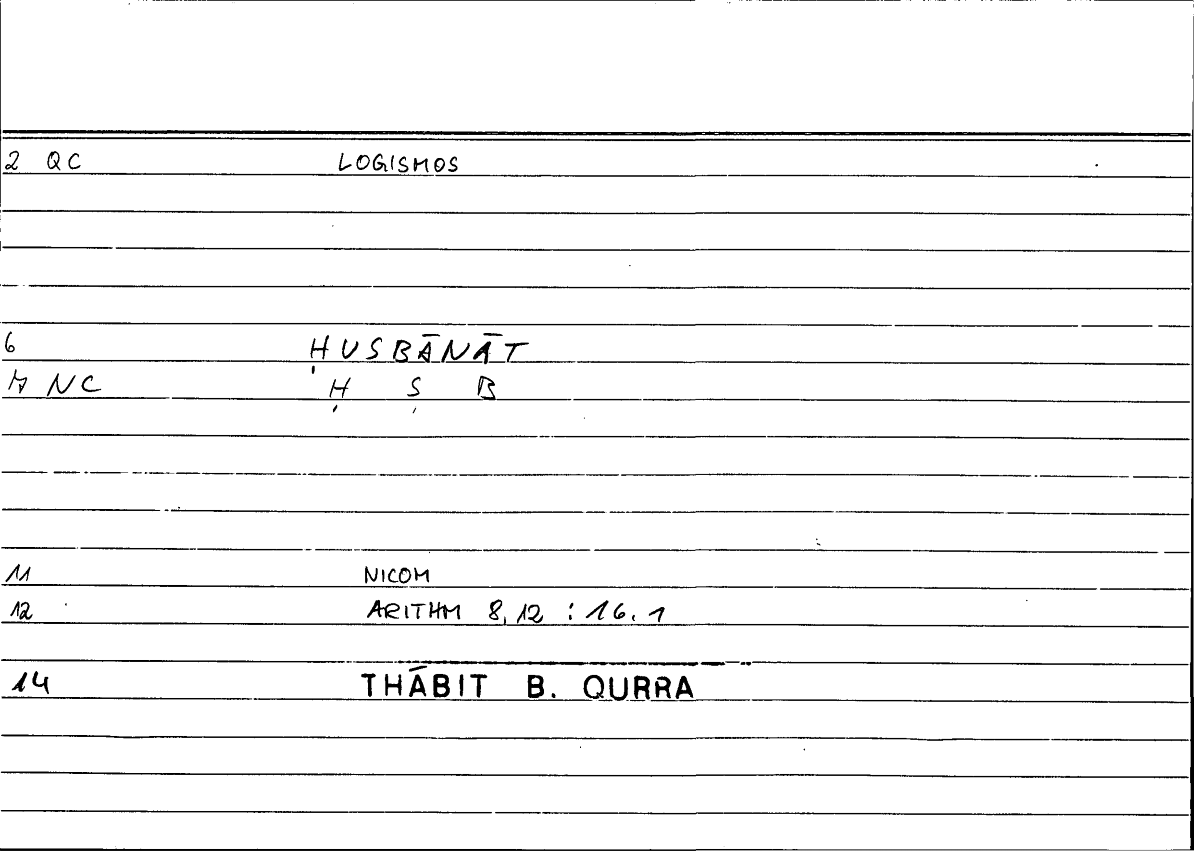 2 QC LOGISMOS
6 ḤUSBĀNĀT
NC Ḥ Ṣ B
11 NICOM
12 ARITHM 8,12 : 16.1
14 THĀBIT B. QURRA